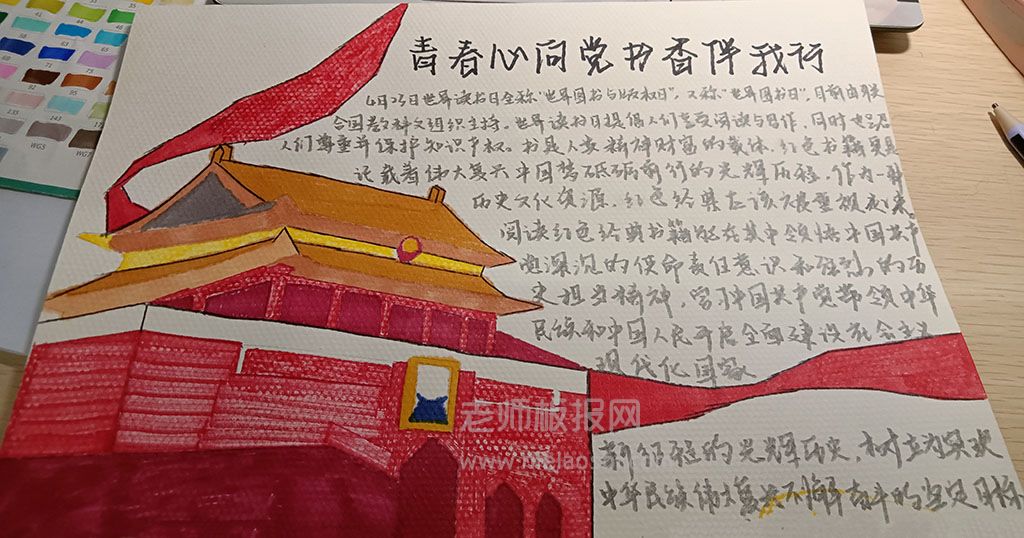 青春心向党 书香伴我行
4月23日世界读书日全称"世界图书与版权日", 又称"世界图书日", 目前由联
合国教科文组织主持。世界读书日提倡人们享受阅读与写作, 同时也呼吁
人们尊重并保护知识产权。书是人类精神财富的载体, 红色书籍更是
记载着伟大复兴中国梦砥砺前行的光辉历程, 作为一种
历史文化资源, 红色经典应该被重视起来。
阅读红色经典书籍能在其中领悟中国共产
党深沉的使命责任意识和强烈的历
史担当精神, 学习中国共产党带领中华
民族和中国人民开启全面建设社会主义
现代化国家
新征程的光辉历史, 树立为实现
中华民族伟大复兴不懈奋斗的坚定目标
老师板报网
41
34
46
43
58
63
62
71
75
76
95
92
94
145
WG5
WG7